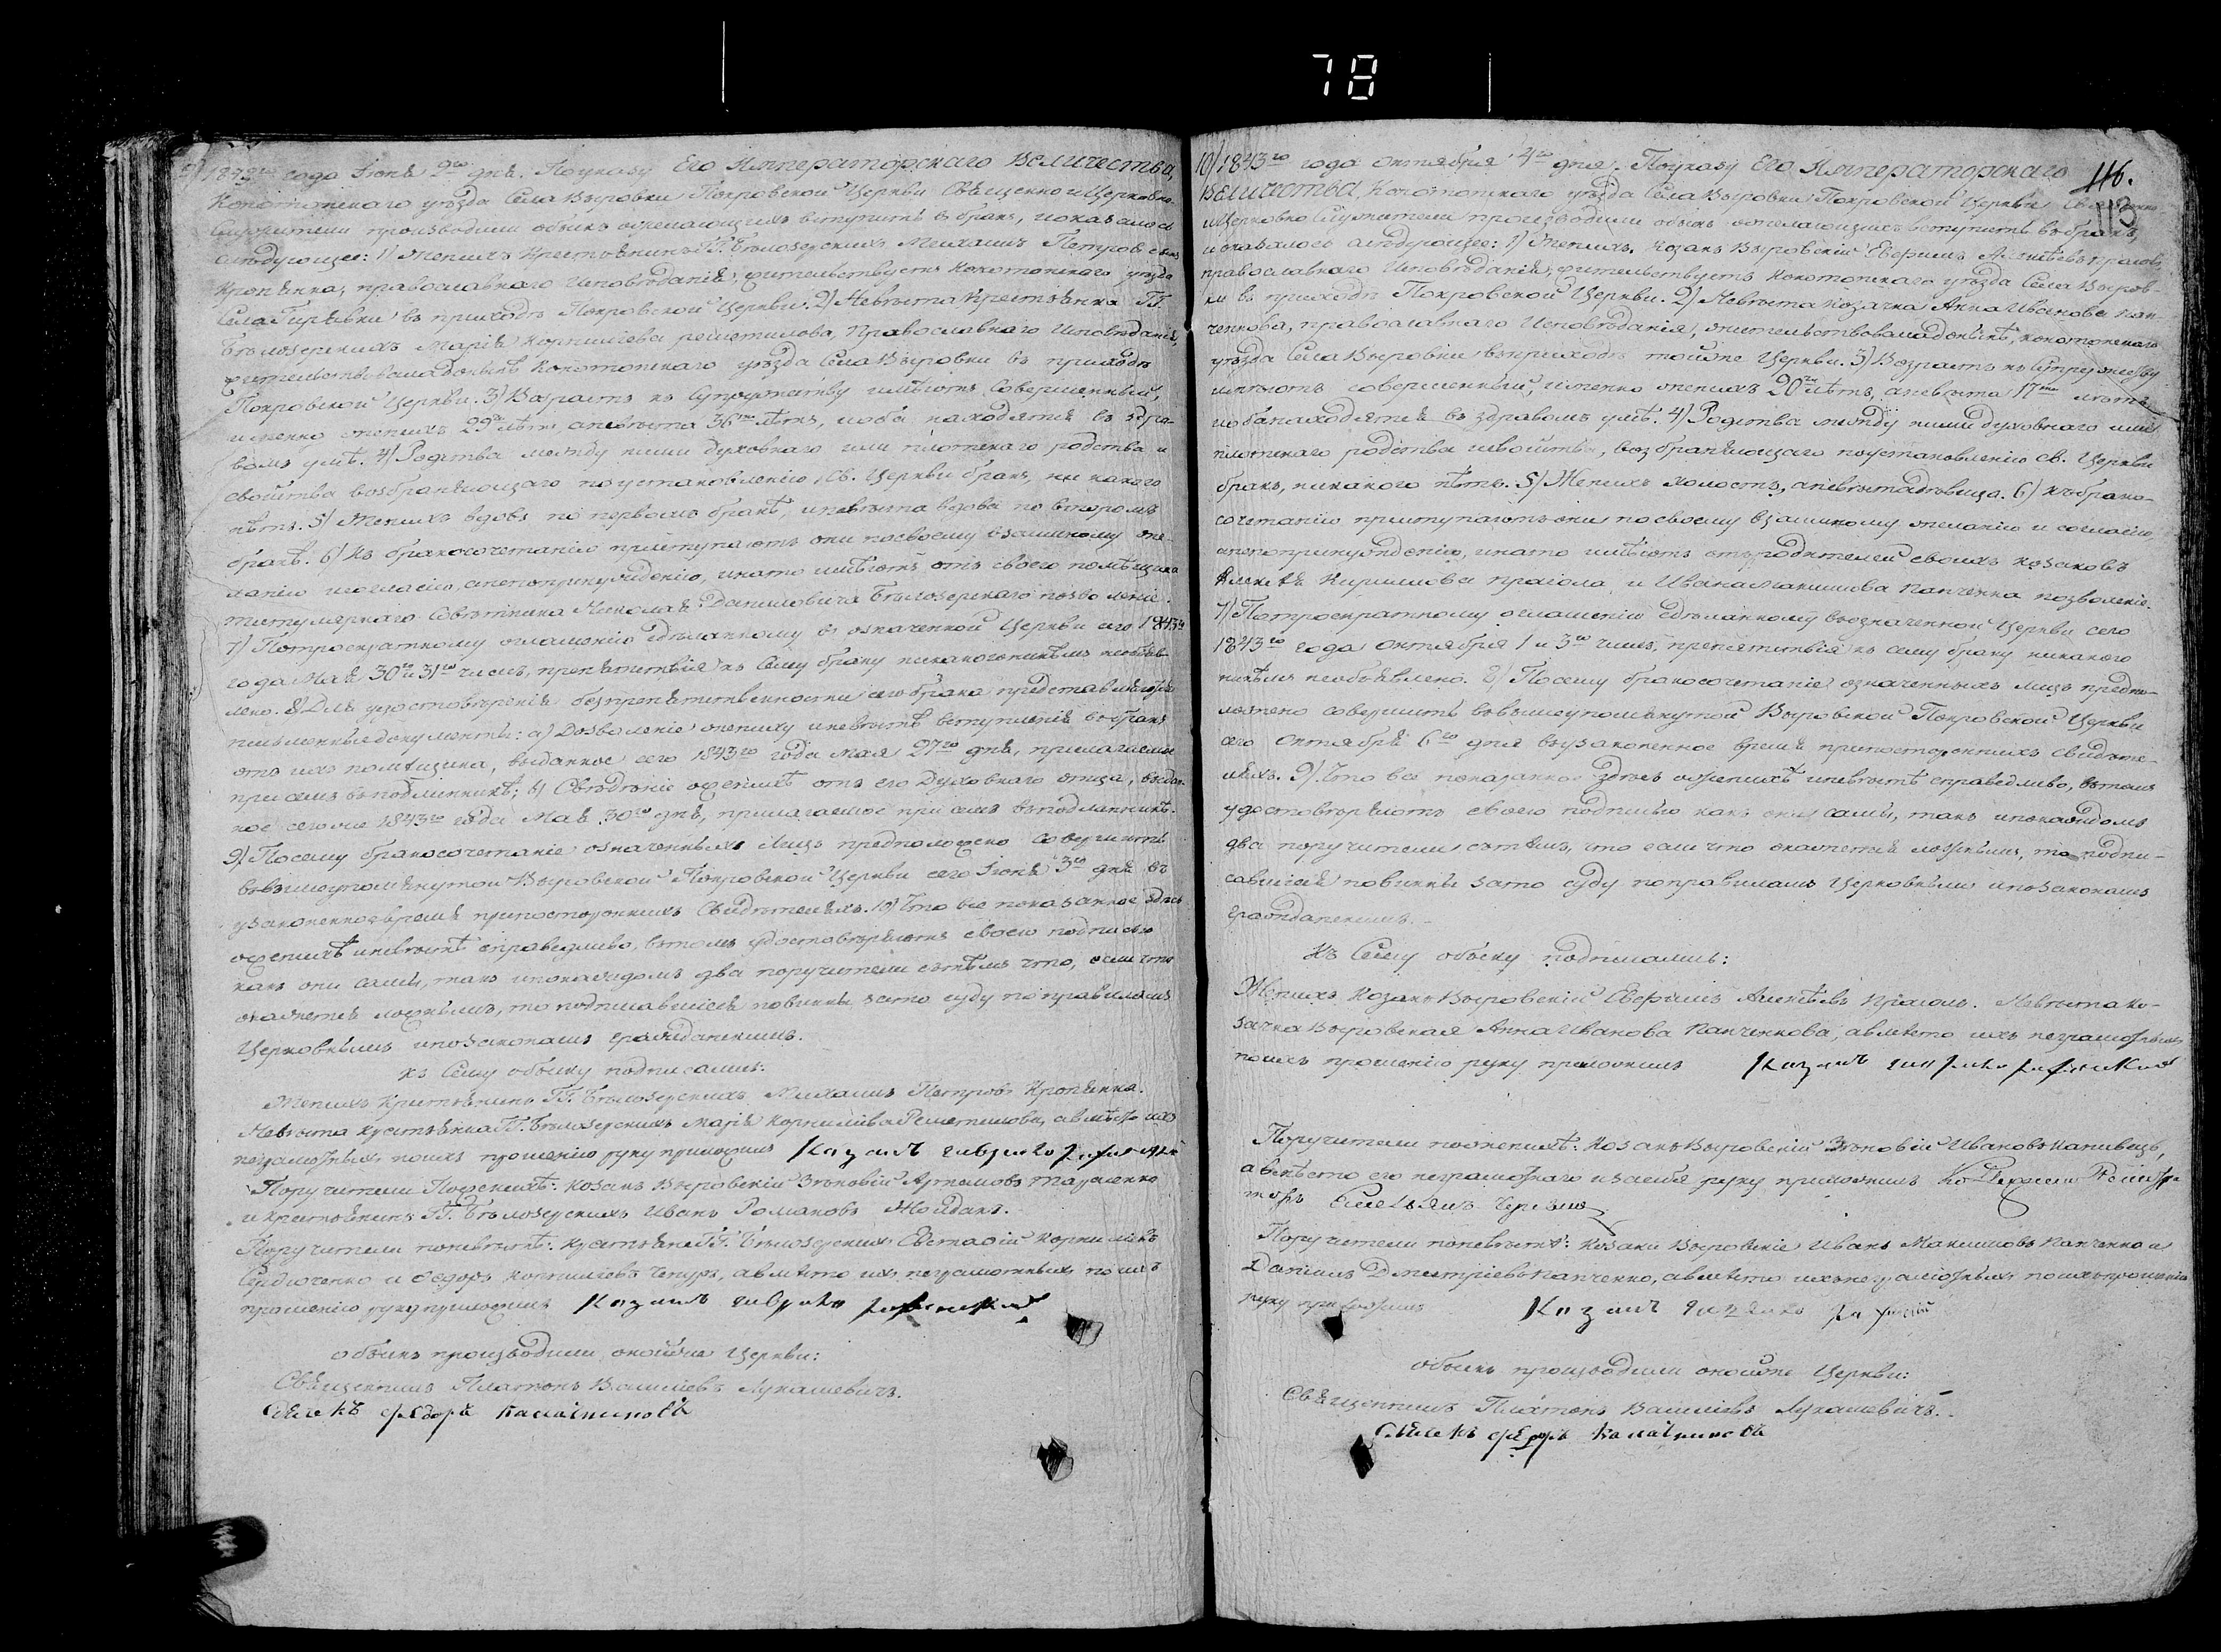 78
9) 1843го года Іюня 2го дня. По указу Его Императорскаго Величества,
Конотопскаго уѣзда Села Выровки Покровской Церкви Священно и Церковно-
Служители производили обыскъ о желающихъ вступить въ бракъ, и оказалось
слѣдующее: 1) Женихъ Крестьянинъ ГГ. Бѣлозерскихъ Михаилъ Петровъ сынъ
православнаго Исповѣданія, жительствуетъ Конотопскаго уѣзда
Села въ приходѣ Покровской Церкви. 2) Невѣста Крестьянка ГГ.
Бѣлозерскихъ Марія Корниліева Решетилова, Православнаго Исповѣданія,
жительствовала доныне Конотопскаго уѣзда Села Выровки въ приходѣ
Покровской Церкви. 3) Возрастъ къ Супружеству имѣютъ Совершенный,
и менно женихъ 29ть лѣтъ, а невѣста 36ть лѣтъ, и оба находятся въ здра-
вомъ умѣ. 4) Родства между ними духовнаго или плотскаго родства и
свойства возбраняющаго по установленію Св. Церкви бракъ, ни какого
нѣтъ. 5) Женихъ вдовъ по первомъ бракѣ, и невѣста вдова по второмъ
бракѣ. 6) Къ бракосочетанію приступаютъ они по своему взаимному же-
ланію и согласію, а не по принужденію, и на то имѣютъ отъ своего помѣщика
титулярнаго Совѣтника Николая Даниловича Бѣлозерскаго позволеніе.
7) По троекратному оглашенію сдѣланному въ означенной Церкви сего 1843го
года Мая 30го и 31го числъ, препятствія къ Сему браку никакого никѣмъ необъяв-
лено. 8) Для удостовѣренія безпрепятственности сего брака представляются
письменные документы: а) Дозволеніе жениху и невѣстѣ вступленія въ бракъ
отъ ихъ помѣщика, выданное сего 1843го года Мая 27го дня, прилагаемое
при семъ въ подлинникѣ; б) Свѣдѣніе о женихѣ отъ его Духовнаго отца, выдан-
ное сего же 1843го года Мая 30го дня, прилагаемое при семъ въ подлинникѣ.
9) По сему бракосочетаніе означенныхъ лицъ предположено совершить
въ вышеупомянутой Выровской Покровской Церкви сего Іюня 3го дня въ
узаконенное время при постороннихъ Свидѣтеляхъ. 10) Что все показанное здѣсь
о женихѣ и невѣстѣ справедливо, въ томъ удостовѣряютъ своею подписью
какъ они сами, такъ и по каждомъ два поручители съ тѣмъ что, если что
окажется ложнымъ, то подписавшіеся повинны за то суду по правиламъ
Церковнымъ и по законамъ гражданскимъ.
къ Сему обыску подписались:
Женихъ Крестьянинъ ГГ. Бѣлозерскихъ Михаилъ Петровъ
Невѣста Крестьянка ГГ. Бѣлозерскихъ Марія Корниліева Решетилова, а вмѣсто ихъ
неграмотныхъ по ихъ прошенію руку приложилъ Козакъ
Поручители По женихѣ: козакъ Выровскій Зѣновій Артемовъ Тараненко
и крестьянинъ ГГ. Бѣлозерскихъ Иванъ Романовъ
Поручители по невѣстѣ: крестьяне ГГ. Бѣлозерскихъ Евстафій Корниліевъ
Сердюченко и Федоръ Корниліевъ Чепуръ, а вмѣсто ихъ неграмотныхъ по ихъ
прошенію руку приложилъ Козакъ
обыскъ производили оной же Церкви:
Священникъ Платонъ Василіевъ Лукашевичъ.
Дьячекъ Федоръ
116.
113
10) 1843го года октября 4го дня. По указу Его Императорскаго
Величества, Конотопскаго уѣзда Села Выровки Покровской Церкви Священно-
и Церковно Служители производили обыскъ о желающихъ вступить въ бракъ,
и оказалось слѣдующее: 1) Женихъ, козакъ Выровскій Евфимъ Алексѣевъ
православнаго Исповѣданія, жительствуетъ Конотопскаго уѣзда Села Выров-
ки въ приходѣ Покровской Церкви. 2) Невѣста козачка Анна Иванова Пан-
ченкова, православнаго Исповѣданія, жительствовала доныне, конотопскаго
уѣзда Села Выровки въ приходѣ той же Церкви. 3) Возрастъ къ Супружеству
имѣютъ совершенный, именно женихъ 20ть лѣтъ, а невѣста 17ть лѣтъ,
и оба находятся въ здравомъ умѣ. 4) Родства между ними духовнаго или
плотскаго родства и свойства, возбраняющаго по установленію св. Церкви
бракъ, никакого нѣтъ. 5) Женихъ холостъ, а невѣста дѣвица. 6) къ брако-
сочетанію приступаютъ они по своему взаимному желанію и согласію,
а не по принужденію, и на то имѣютъ отъ родителей своихъ козаковъ
Алексѣя Кириллова и Ивана Максимова Панченка позволеніе.
7) По троекратному оглашенію сдѣланному въ означенной Церкви сего
1843го года октября 1 и 3го числъ, препятствія къ сему браку никакого
никѣмъ необъявлено. 8) По сему бракосочетаніе означенныхъ лицъ предпо-
ложено совершить въ вышеупомянутой Выровской Покровской Церкви
сего Октября 6го дня въ узаконенное время при постороннихъ свидѣте-
ляхъ. 9) Что все показанное здѣсь о женихѣ и невѣстѣ справедливо, въ томъ
удостовѣряютъ своею подписью какъ они сами, такъ и по каждомъ
два поручители съ тѣмъ, что если что окажется ложнымъ, то подпи-
савшіеся повинны за то суду по правиламъ Церковнымъ и по законамъ
гражданскимъ.
Къ Сему обыску подписались:
Женихъ Козакъ Выровскій Евфимъ Алексѣевъ Невѣста ко-
зачка Выровская Анна Иванова Панченкова, а вмѣсто ихъ неграмотныхъ
по ихъ прошенію руку приложилъ Козакъ
Поручители по женихѣ: Козакъ Выровскій Зѣновій Ивановъ
а вмѣсто его неграмотнаго и за себя руку приложилъ
Поручители по невѣстѣ: козаки Выровскіе Иванъ Максимовъ Панченко и
Даніилъ Дмитріевъ Панченко, а вмѣсто ихъ неграмотныхъ по ихъ прошенію
руку приложилъ Козакъ
обыскъ производили оной же Церкви:
Священникъ Платонъ Василіевъ Лукашевичъ.
Дьячекъ Федоръ